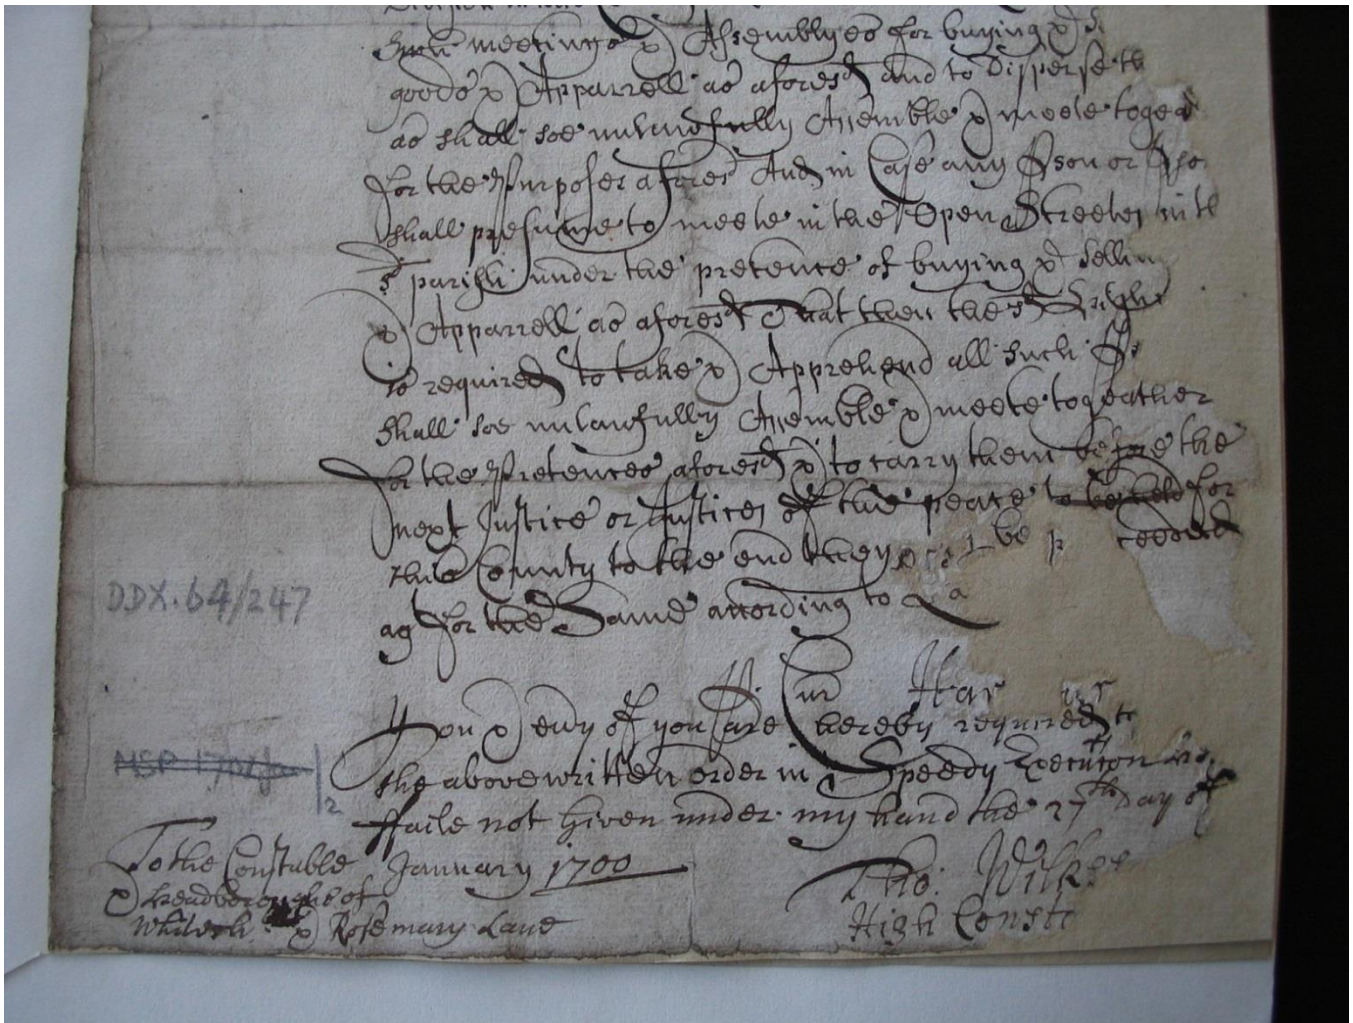 Such meetings & Assemblyes for buying &
goods & Apparrell as aforesd and to Disperse th
as shall soe unlawfully Assemble & meete togea
for the Purposes aforesd And in Case any Pson or Pso
shall presume to meete in the Open Streetes in th
sd parish under the pretence of buying & Sellin
& Apparrell as aforesd That then the sd
is required to take & Apprehend all Such Ps
Shall soe unlawfully Assemble & meete togeather
for the Pretences aforesd & to carry them before the
next Justice or Justices of the peace to be held for
this County to the end they be p ceeded
agt for the Same according to La
P Cur Har
You & evy of you are hereby required to
the abovewritten order in Speedy Execution
ffaile not Given under my hand the 27th Day of
January 1700
To the Constable
& Headboroughs of
& Rosemary Lane
Tho: Wilk
High Consta
DDX.64/247
MSP 1702
2